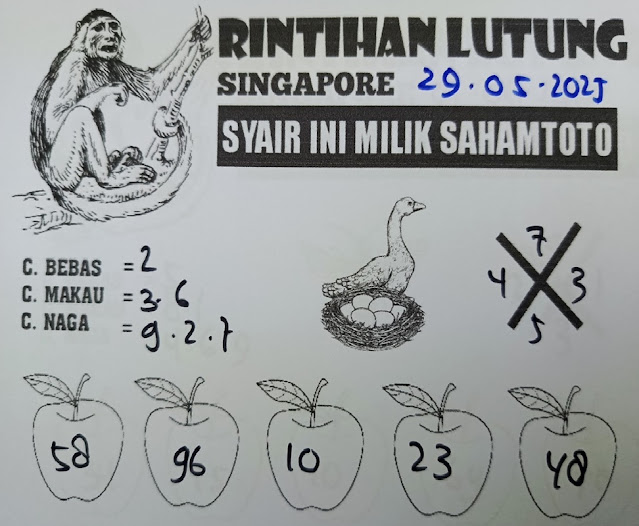 RINTIHAN LUTUNG
SINGAPORE 29.05.2025
SYAIR INI MILIK SAHAMTOTO
C. BEBAS = 2
C. MAKAU = 3.6
C. NAGA = 9.2.7
7
4 3
5
58 96 10 23 48